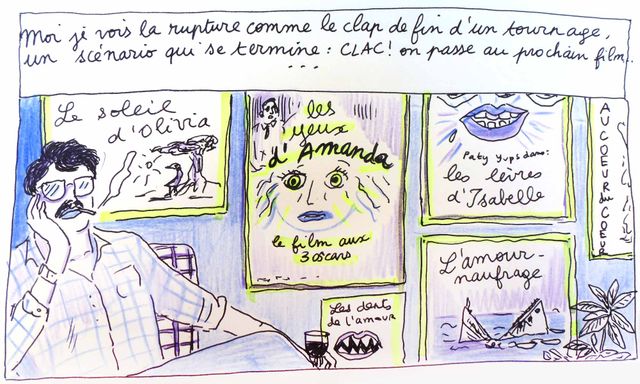 Moi je vois la rupture comme le clap de fin d'un tournage,
un scénario qui se termine : CLAC! on passe au prochain film..
...
Le soleil
d'Olivia
les
yeux
d'Amanda
le film aux
3 oscars
Paty Yups dans:
les lèvres
d'Isabelle
AU COEUR du COEUR
L'amour-
naufrage
Les dents
de l'amour